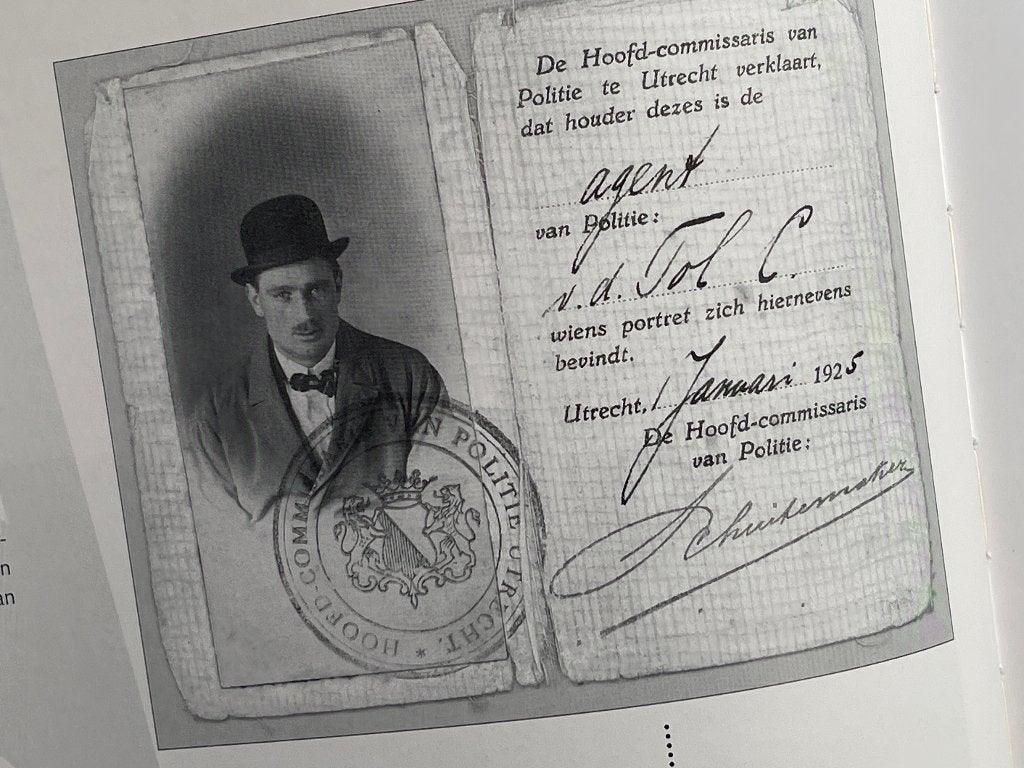 De Hoofd-commissaris van
Politie te Utrecht verklaart,
dat houder dezes is de
agent
van Politie:
v.d. Tol C.
wiens portret zich hiernevens
bevindt.
Utrecht, 1 Januari 1925
De Hoofd-commissaris
van Politie:
Schuitemaker
HOOFD-COMMISSARIS VAN POLITIE UTRECHT. *
n
an